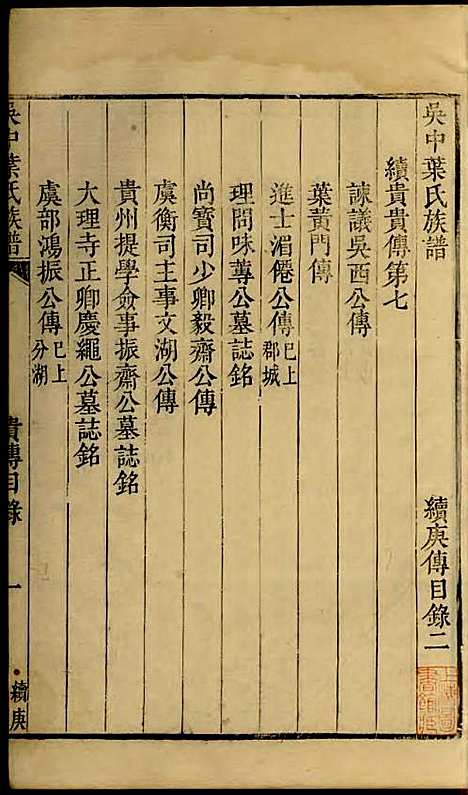 吳中葉氏族譜 續庚傳目錄二
續貴貴傳第七
諫議吳西公傳
葉黃門傳
進士湄僊公傳 巳上郡城
理問味蓴公墓誌銘
尚寶司少卿毅齋公傳
虞衡司主事文湖公傳
貴州提學僉事振齋公墓誌銘
大理寺正卿慶繩公墓誌銘
虞部鴻振公傳 巳上分湖
吳中葉氏族譜 貴傳目錄 一 續庚